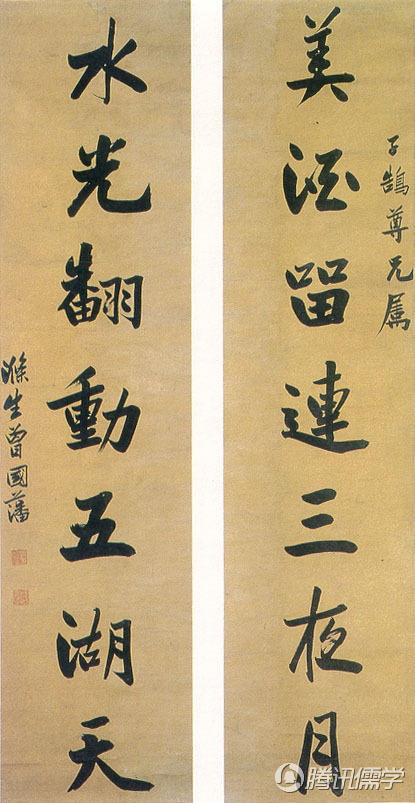 子鵠尊兄属
美酒留連三夜月
水光翻動五湖天
滌生曾國藩
腾讯儒学